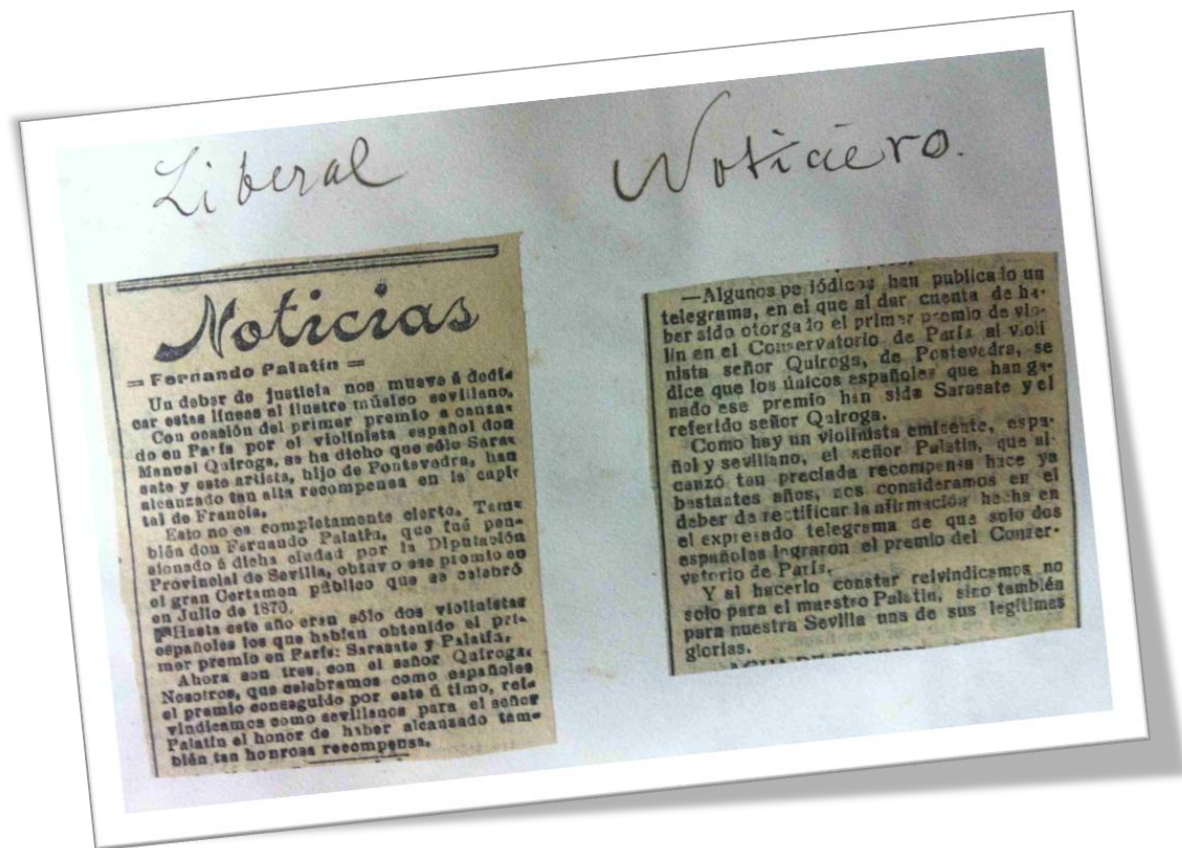 Liberal
Noticias
= Fernando Palatín =
Un deber de justicia nos mueve á dedi-
car estas líneas al ilustre músico sevillano.
Con ocasión del primer premio a canza-
do en París por el violinista español don
Manuel Quiroga, se ha dicho que sólo Sara-
sate y este artista, hijo de Pontevedra, han
alcanzado tan alta recompensa en la capi-
tal de Francia.
Esto no es completamente cierto. Tam-
bién don Fernando Palatín, que fué pen-
sionado á dicha ciudad por la Diputación
Provincial de Sevilla, obtuvo ese premio en
el gran Certamen público que se celebró
en Julio de 1870.
Hasta este año eran sólo dos violinistas
españoles los que habían obtenido el pri-
mer premio en París: Sarasate y Palatín.
Ahora son tres, con el señor Quiroga.
Nosotros, que celebramos como españoles
el premio conseguido por este ú timo, rei-
vindicamos como sevillanos para el señor
Palatín el honor de haber alcanzado tam-
bién tan honrosa recompensa.
Noticiero.
—Algunos pe iódicos han publica lo un
telegrama, en el que al dar cuenta de ha-
ber sido otorga lo el primer premio de vio-
lín en el Conservatorio de París al violi
nista señor Quiroga, de Pontevedra, se
dice que los únicos españoles que han ga-
nado ese premio han sido Sarasate y el
referido señor Quiroga.
Como hay un violinista eminente, espa-
ñol y sevillano, el señor Palatín, que al-
canzó tan preciada recompensa hace ya
bastantes años, nos consideramos en el
deber de rectificar la afirmación hecha en
el expresado telegrama de que solo dos
españoles lograron el premio del Conser-
vatorio de París.
Y al hacerlo constar reivindicamos no
solo para el maestro Palatín, sino también
para nuestra Sevilla una de sus legítimas
glorias.